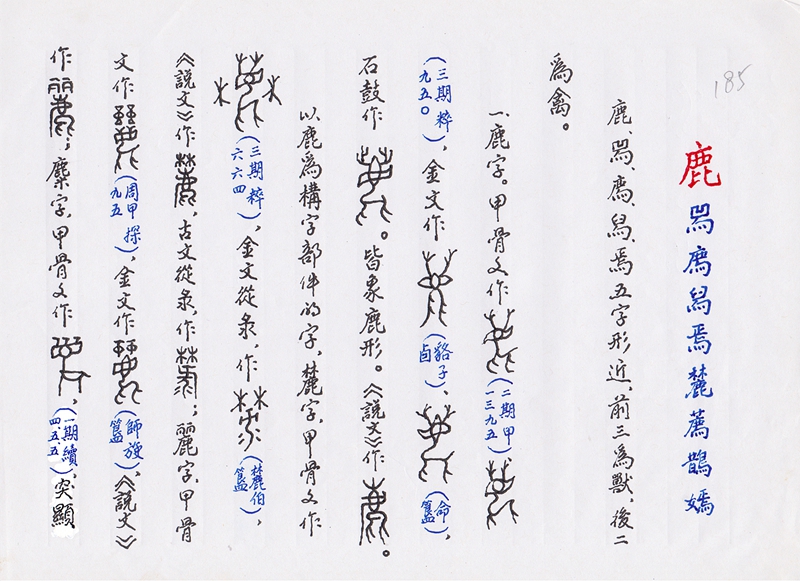 185
鹿 廌 舄 焉 麓 薦 鵲 嫣
鹿、廌、舄、焉五字形近,前三為獸,後二
為禽。
一鹿字。甲骨文作(二期甲一三九五)
(三期粹九五〇),金文作(貉子卣)、(命簋),
石鼓作。皆象鹿形。《說文》作。
以鹿為構字部件的字,麓字,甲骨文作
(三期粹六六四),金文從彔,作(麓伯簋),
《說文》作,古文從彔,作;麗字,甲骨
文作(周甲探九五),金文作(師旋簋),《說文》
作;麋字,甲骨文作,(一期續四.五.五),突顯